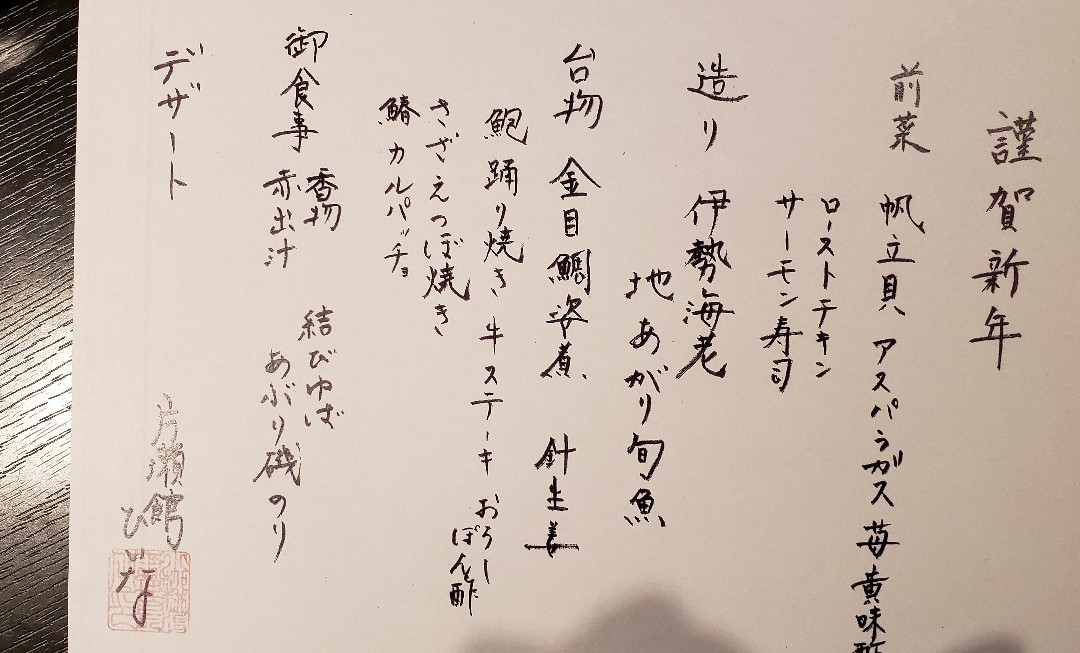 謹賀新年
前菜 帆立貝 アスパラガス 苺 黄味酢
ローストチキン
サーモン寿司
造り 伊勢海老
地あがり旬魚
台物 金目鯛姿煮 針生姜
鮑踊り焼き 牛ステーキ おろし
ぽん酢
さざえつぼ焼き
鰆カルパッチョ
御食事 香物 結びゆば
赤出汁 あぶり磯のり
デザート
片瀬館
ひいな